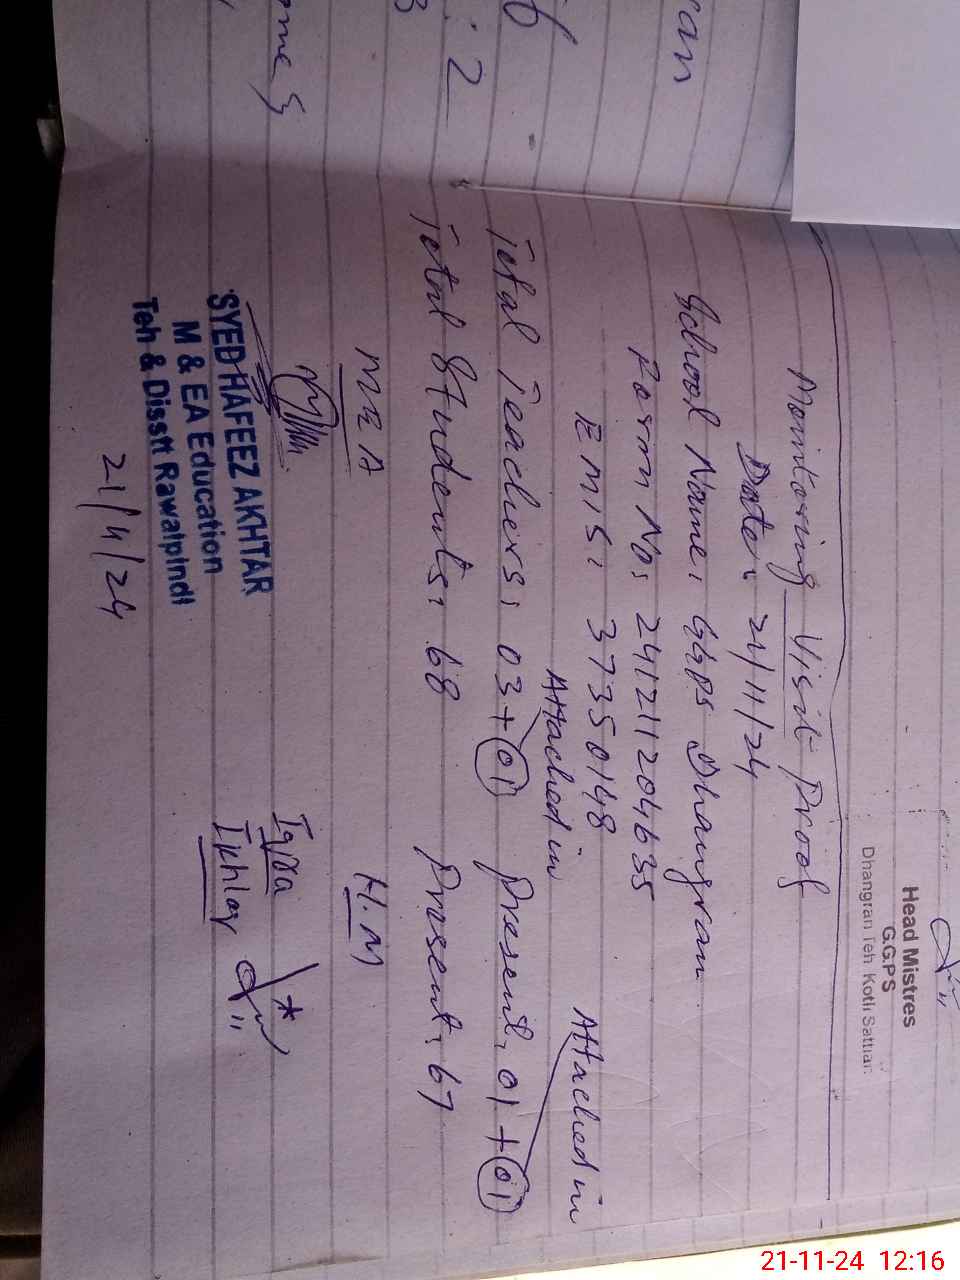 Head Mistres
G.G.PS
Dhangran Teh Kotli Sattian
Monitoring Visit Proof
Date: 21/11/24
School Name: GGPS Dhangran
Form No: 241211204635
EMIS: 37350148
Attached in Attached in
Total Teachers: 03+01 Present: 01+01
Total Students: 68 Present: 67
MEA H.M
Iqra
Ikhlaq
SYED HAFEEZ AKHTAR
M & EA Education
Teh & Disstt Rawalpindi
21/11/24
21-11-24 12:16